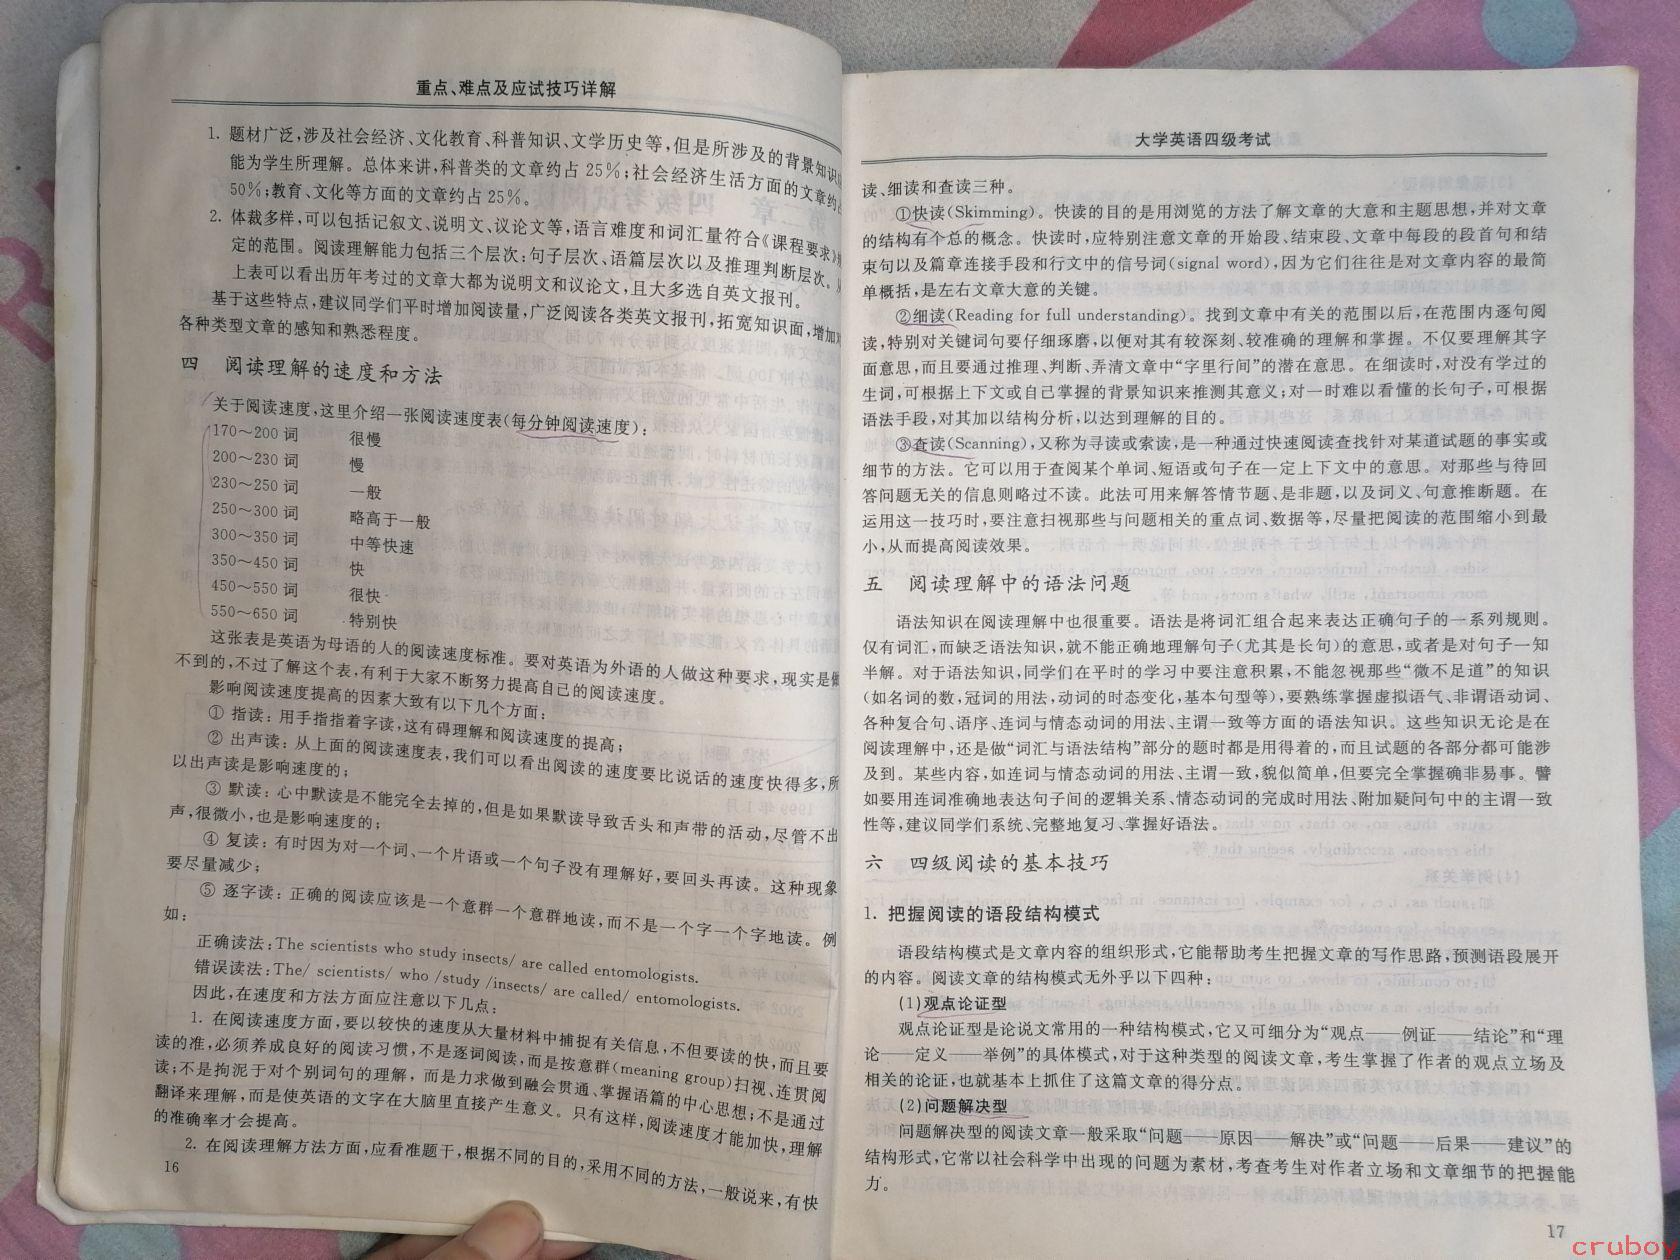 重点、难点及应试技巧详解
1. 题材广泛,涉及社会经济、文化教育、科普知识、文学历史等,但是所涉及的背景知识
能为学生所理解。总体来讲,科普类的文章约占 25%;社会经济生活方面的文章约占
50%;教育、文化等方面的文章约占 25%。
2. 体裁多样,可以包括记叙文、说明文、议论文等,语言难度和词汇量符合《课程要求》
定的范围。阅读理解能力包括三个层次:句子层次、语篇层次以及推理判断层次。
上表可以看出历年考过的文章大都为说明文和议论文,且大多选自英文报刊。
基于这些特点,建议同学们平时增加阅读量,广泛阅读各类英文报刊,拓宽知识面,增加
各种类型文章的感知和熟悉程度。
四 阅读理解的速度和方法
关于阅读速度,这里介绍一张阅读速度表(每分钟阅读速度):
170~200 词 很慢
200~230 词 慢
230~250 词 一般
250~300 词 略高于一般
300~350 词 中等快速
350~450 词 快
450~550 词 很快
550~650 词 特别快
这张表是英语为母语的人的阅读速度标准。要对英语为外语的人做这种要求,现实是做
不到的,不过了解这个表,有利于大家不断努力提高自己的阅读速度。
影响阅读速度提高的因素大致有以下几个方面:
① 指读:用手指指着字读,这有碍理解和阅读速度的提高;
② 出声读:从上面的阅读速度表,我们可以看出阅读的速度要比说话的速度快得多,所
以出声读是影响速度的;
③ 默读:心中默读是不能完全去掉的,但是如果默读导致舌头和声带的活动,尽管不出
声,很微小,也是影响速度的;
④ 复读:有时因为对一个词、一个片语或一个句子没有理解好,要回头再读。这种现象
要尽量减少;
⑤ 逐字读:正确的阅读应该是一个意群一个意群地读,而不是一个字一个字地读。例
如:
正确读法:The scientists who study insects/ are called entomologists.
错误读法:The/ scientists/ who /study /insects/ are called/ entomologists.
因此,在速度和方法方面应注意以下几点:
1. 在阅读速度方面,要以较快的速度从大量材料中捕捉有关信息,不但要读的快,而且要
读的准,必须养成良好的阅读习惯,不是逐词阅读,而是按意群(meaning group)扫视、连贯阅
读;不是拘泥于对个别词句的理解,而是力求做到融会贯通、掌握语篇的中心思想;不是通过
翻译来理解,而是使英语的文字在大脑里直接产生意义。只有这样,阅读速度才能加快,理解
的准确率才会提高。
2. 在阅读理解方法方面,应看准题干,根据不同的目的,采用不同的方法,一般说来,有快
16
大学英语四级考试
读、细读和查读三种。
①快读(Skimming)。快读的目的是用浏览的方法了解文章的大意和主题思想,并对文章
的结构有个总的概念。快读时,应特别注意文章的开始段、结束段、文章中每段的段首句和结
束句以及篇章连接手段和行文中的信号词(signal word),因为它们往往是对文章内容的最简
单概括,是左右文章大意的关键。
②细读(Reading for full understanding)。找到文章中有关的范围以后,在范围内逐句阅
读,特别对关键词句要仔细琢磨,以便对其有较深刻、较准确的理解和掌握。不仅要理解其字
面意思,而且要通过推理、判断、弄清文章中“字里行间”的潜在意思。在细读时,对没有学过的
生词,可根据上下文或自己掌握的背景知识来推测其意义;对一时难以看懂的长句子,可根据
语法手段,对其加以结构分析,以达到理解的目的。
③查读(Scanning),又称为寻读或索读,是一种通过快速阅读查找针对某道试题的事实或
细节的方法。它可以用于查阅某个单词、短语或句子在一定上下文中的意思。对那些与待回
答问题无关的信息则略过不读。此法可用来解答情节题、是非题,以及词义、句意推断题。在
运用这一技巧时,要注意扫视那些与问题相关的重点词、数据等,尽量把阅读的范围缩小到最
小,从而提高阅读效果。
五 阅读理解中的语法问题
语法知识在阅读理解中也很重要。语法是将词汇组合起来表达正确句子的一系列规则。
仅有词汇,而缺乏语法知识,就不能正确地理解句子(尤其是长句)的意思,或者是对句子一知
半解。对于语法知识,同学们在平时的学习中要注意积累,不能忽视那些“微不足道”的知识
(如名词的数,冠词的用法,动词的时态变化,基本句型等),要熟练掌握虚拟语气、非谓语动词、
各种复合句、语序、连词与情态动词的用法、主谓一致等方面的语法知识。这些知识无论是在
阅读理解中,还是做“词汇与语法结构”部分的题时都是用得着的,而且试题的各部分都可能涉
及到。某些内容,如连词与情态动词的用法、主谓一致,貌似简单,但要完全掌握确非易事。譬
如要用连词准确地表达句子间的逻辑关系、情态动词的完成时用法、附加疑问句中的主谓一致
性等,建议同学们系统、完整地复习、掌握好语法。
六 四级阅读的基本技巧
1. 把握阅读的语段结构模式
语段结构模式是文章内容的组织形式,它能帮助考生把握文章的写作思路,预测语段展开
的内容。阅读文章的结构模式无外乎以下四种:
(1)观点论证型
观点论证型是论说文常用的一种结构模式,它又可细分为“观点——例证——结论”和“理
论——定义——举例”的具体模式,对于这种类型的阅读文章,考生掌握了作者的观点立场及
相关的论证,也就基本上抓住了这篇文章的得分点。
(2)问题解决型
问题解决型的阅读文章一般采取“问题——原因——解决”或“问题——后果——建议”的
结构形式,它常以社会科学中出现的问题为素材,考查考生对作者立场和文章细节的把握能
力。
17
cruboy